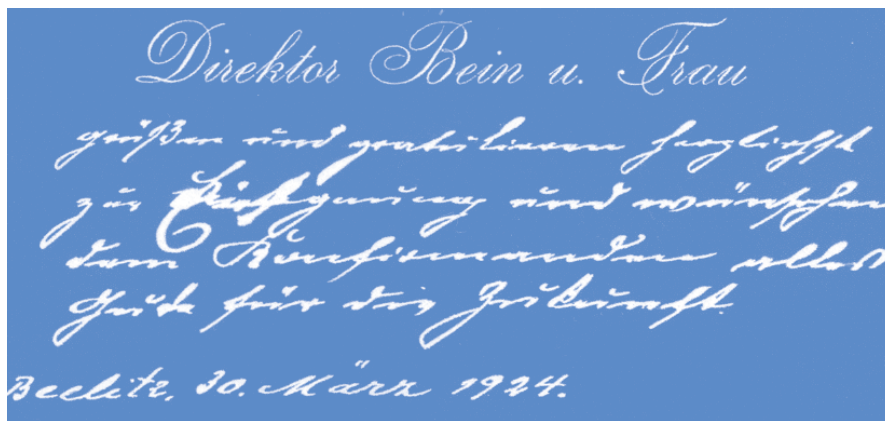 Direktor Bein u. Frau
grüßen und gratulieren herzlichst
zur Einsegnung und wünschen
dem Konfirmanden alles
Gute für die Zukunft.
Beelitz, 30. März 1924.